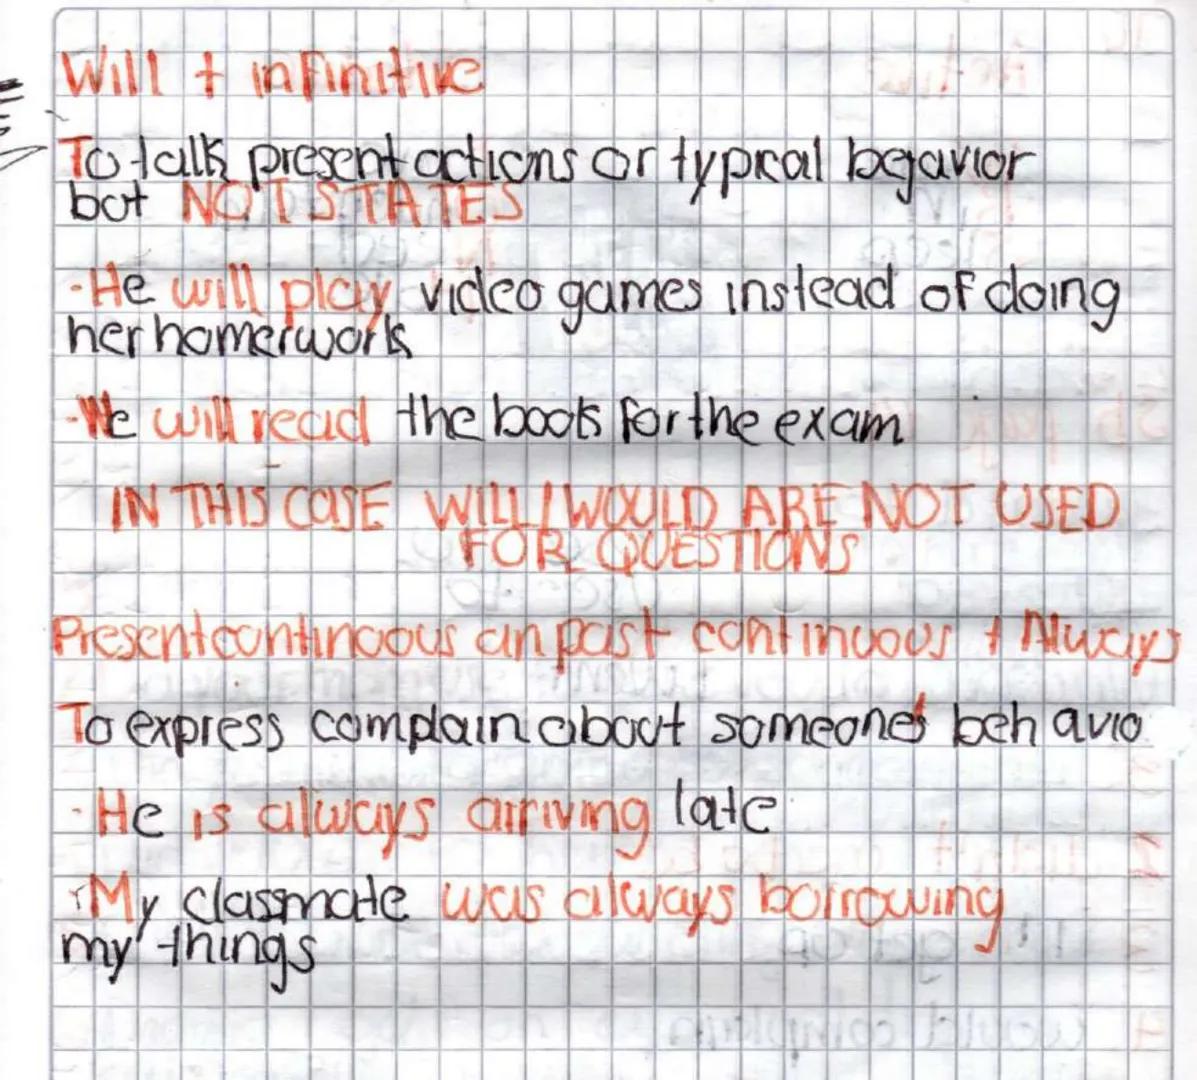 Will + infinitive
To talk present actions or typical begavior
bot NOT STATES
-He will play video games instead of doing
her homerwork
-We will read the boots for the exam
IN THIS CASE WILL/WOULD ARE NOT USED
FOR QUESTIONS
Present continoous an past continuous + Always
To express complain aboout someone's behavio
-He is always arriving late
-My classmate was always borrowing
my things